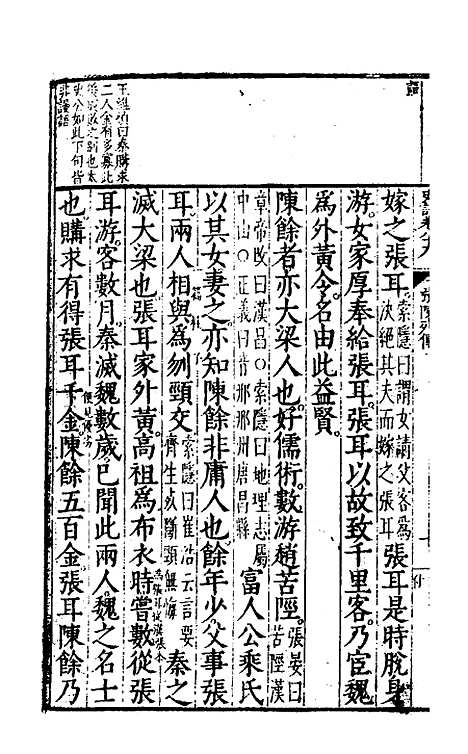 史記卷八十九 張陳列傳
嫁之張耳索隱曰謂女請父客爲決絕其夫而嫁之張耳張耳是時脫身
游女家厚奉給張耳張耳以故致千里客乃宦魏
爲外黃令名由此益賢
陳餘者亦大梁人也好儒術數游趙苦陘張晏曰苦陘漢
章帝改曰漢昌○索隱曰地理志屬中山○正義曰音邢邢州唐昌縣富人公乘氏
以其女妻之亦知陳餘非庸人也餘年少父事張
耳兩人相與爲刎頸交索隱曰崔浩云言要齊生死斷頸無悔秦之
滅大梁也張耳家外黃高祖爲布衣時嘗數從張
耳游客數月秦滅魏數歲已聞此兩人魏之名士
也購求有得張耳千金陳餘五百金張耳陳餘乃
王維楨曰秦購求
二人金有多寡此
張陳之別也太
史公如此下句皆
非謾語